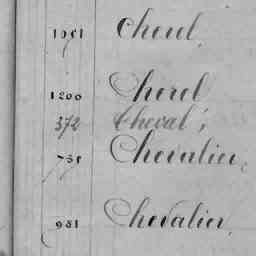 1051 Cherel,
1200 Cherel
372 Cheval,
731 Chevalier,
981 Chevalier,